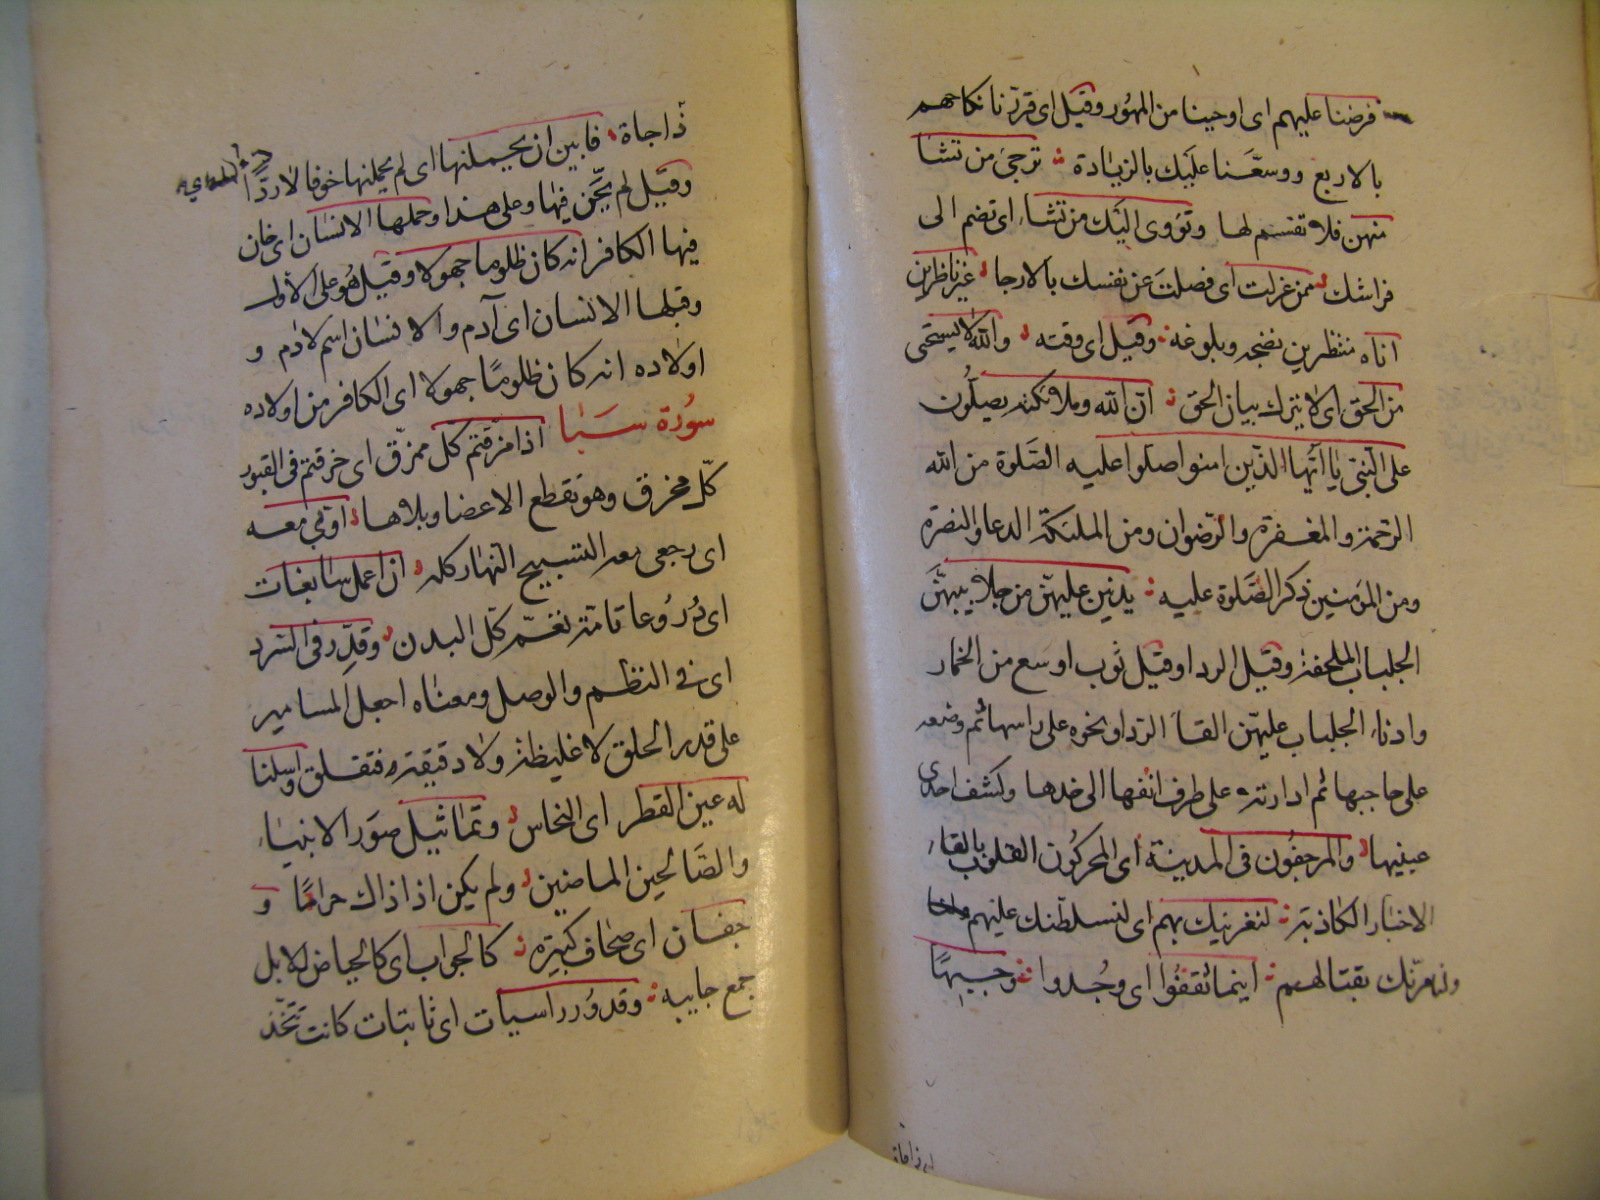 فرضنا عليهم اى اوجبنا من المهور وقيل اى قررنا نكاحهم
بالاربع ووسعنا عليك بالزيادة ترجى من تشا
منهن فلا تقسم لها وتؤوى اليك من تشاء اى تضم الى
فراشك ممن عزلت اى فصلت عن نفسك بالارجا غير ناظرين
اناه منتظرين نضجه وبلوغه وقيل اى وقته والله لا يستحى
من الحق اى لا يترك بيان الحق ان الله وملائكته يصلون
على النبى يا ايها الذين امنوا صلوا عليه الصلوة من الله
الرحمة والمغفرة والرضوان ومن الملئكة الدعا والنصرة
ومن المؤمنين ذكر الصلوة عليه يدنين عليهن من جلابيبهن
الجلباب الملحفة وقيل الردا وقيل ثوب اوسع من الخمار
وادناء الجلباب عليهن القاء الردا ونحوه على راسها ثم وضعه
على حاجبها ثم ادارته على طرف انفها الى خدها وكشف احدى
عينيها والمرجفون فى المدينة اى المحركون القلوب بالقاء
الاخبار الكاذبة لنغرينك بهم اى لنسلطنك عليهم
بقتالهم اينما ثقفوا اى وجدوا وجيها
اى ذا جاة
ذا جاة فابين ان يحملنها اى لم يحملنها خوفا لا ردا
وقيل لم يخن فيها وعلى هذا وحملها الانسان اى خان
فيها الكافر انه كان ظلوما جهولا وقيل هو على الاول
وقبلها الانسان اى آدم والانسان اسم لادم و
اولاده انه كان ظلوما جهولا اى الكافر من اولاده
سورة سبا اذا مزقتم كل ممزق اى خرقتم فى القبور
كل مخرق وهو تقطع الاعضا وبلاها اوبى معه
اى رجعى معه التسبيح النهار كله ان اعمل سابغات
اى دروعا تامة تغم كل البدن وقدر فى السرد
اى فى النظم والوصل ومعناه اجعل المسامير
على قدر الحلق لا غليظة ولا دقيقة فتقلق واسلنا
له عين القطر اى النحاس وتماثيل صور الانبياء
والصالحين الماضين ولم يكن اذ اذاك حراما و
جفان اى صحاف كبيرة كالجواب اى كالحياض للابل
جمع جابيه وقدور راسيات اى ثابتات كانت تتخذ